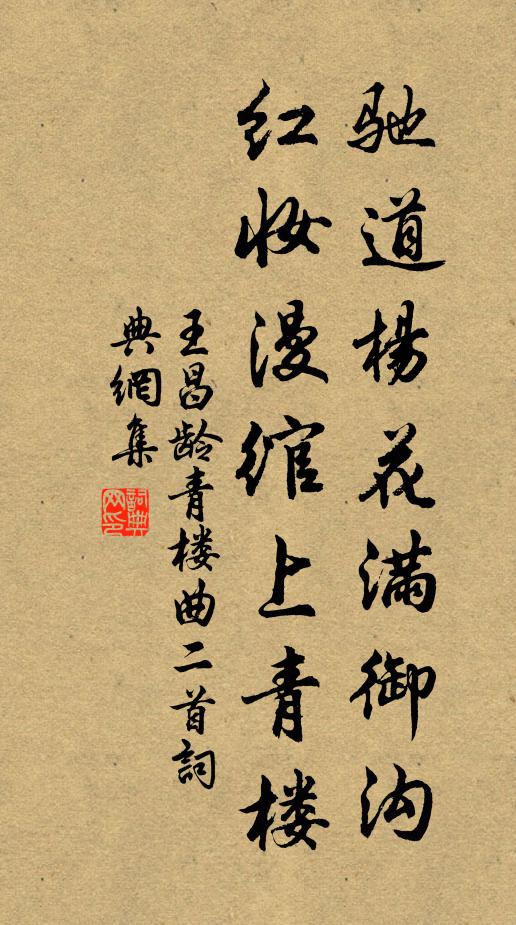 驰道杨花满御沟
红妆漫绾上青楼
王昌龄青楼曲二首詞
典網集
詞典网印